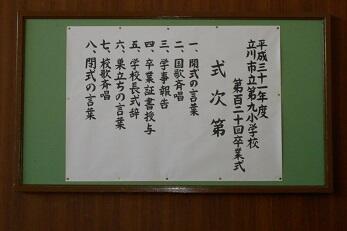 平成三十一年度
立川市立第九小学校
第百二十回卒業式
式次第
一、開式の言葉
二、国歌斉唱
三、学事報告
四、卒業証書授与
五、学校長式辞
六、巣立ちの言葉
七、校歌斉唱
八、閉式の言葉